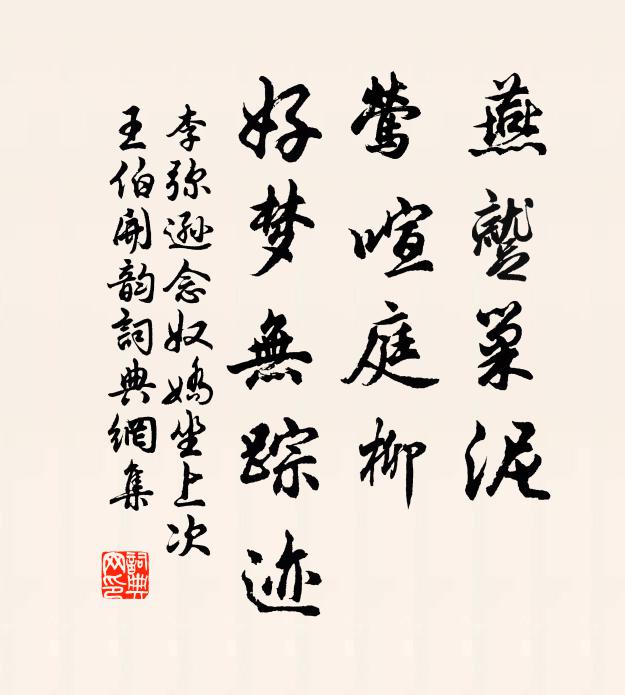 燕蹙巢泥
莺喧庭柳
好梦無踪迹
李弥遜念奴嬌坐上次
王伯開韵詞典網集
詞典
网印